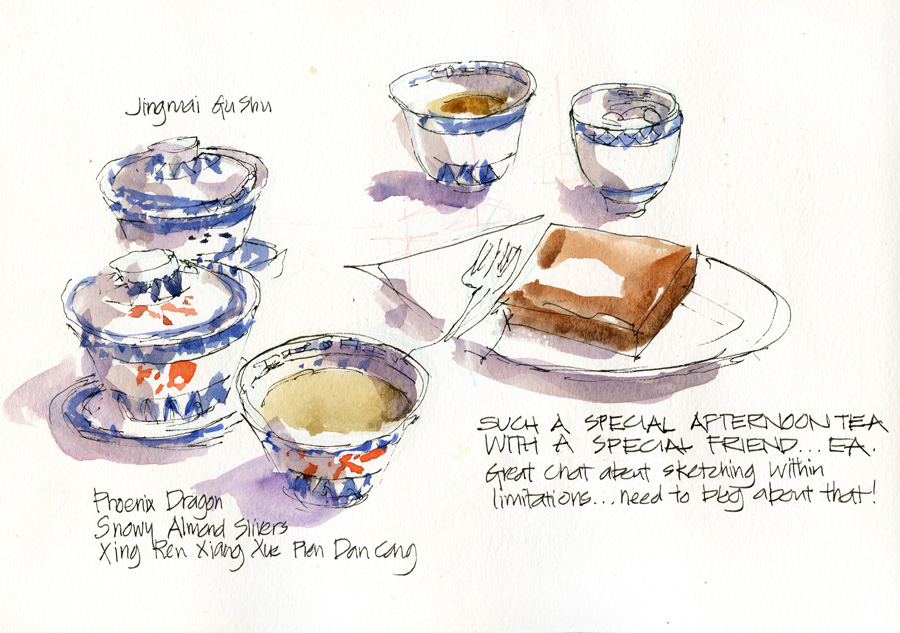 Jingmai Gu Shu
SUCH A SPECIAL AFTERNOON TEA
WITH A SPECIAL FRIEND... EA.
Great chat about sketching within
limitations... need to blog about that!
Phoenix Dragon
Snowy Almond Slivers
Xing Ren Xiang Xue Pian Dan Cong